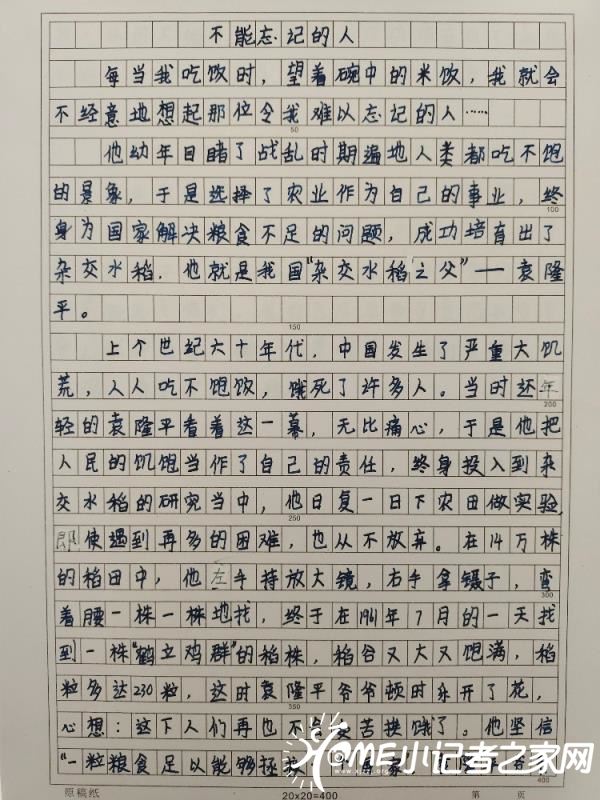 不能忘记的人
每当我吃饭时，望着碗中的米饭，我就会
不经意地想起那位令我难以忘记的人……
50
他幼年目睹了战乱时期遍地人类都吃不饱
的景象，于是选择了农业作为自己的事业，终
100
身为国家解决粮食不足的问题，成功培育出了
杂交水稻．他就是我国“杂交水稻之父”——袁隆
平。
150
上个世纪六十年代，中国发生了严重大饥
荒，人人吃不饱饭，饿死了许多人。当时还年
200
轻的袁隆平看着这一幕，无比痛心，于是他把
人民的饥饱当作了自己的责任，终身投入到杂
交水稻的研究当中，他日复一日下农田做实验，
250
即使遇到再多的困难，也从不放弃。在14万株
的稻田中，他左手持放大镜，右手拿镊子，弯
300
着腰一株一株地找，终于在1961年7月的一天找
到一株“鹤立鸡群”的稻株，稻谷又大又饱满，稻
粒多达230粒，这时袁隆平爷爷顿时乐开了花，
350
心想：这下人们再也不苦挨饿了。他坚信
“一粒粮食足以能够拯救
400
XOME小记者之家网
原稿纸
20×20=400
第 页